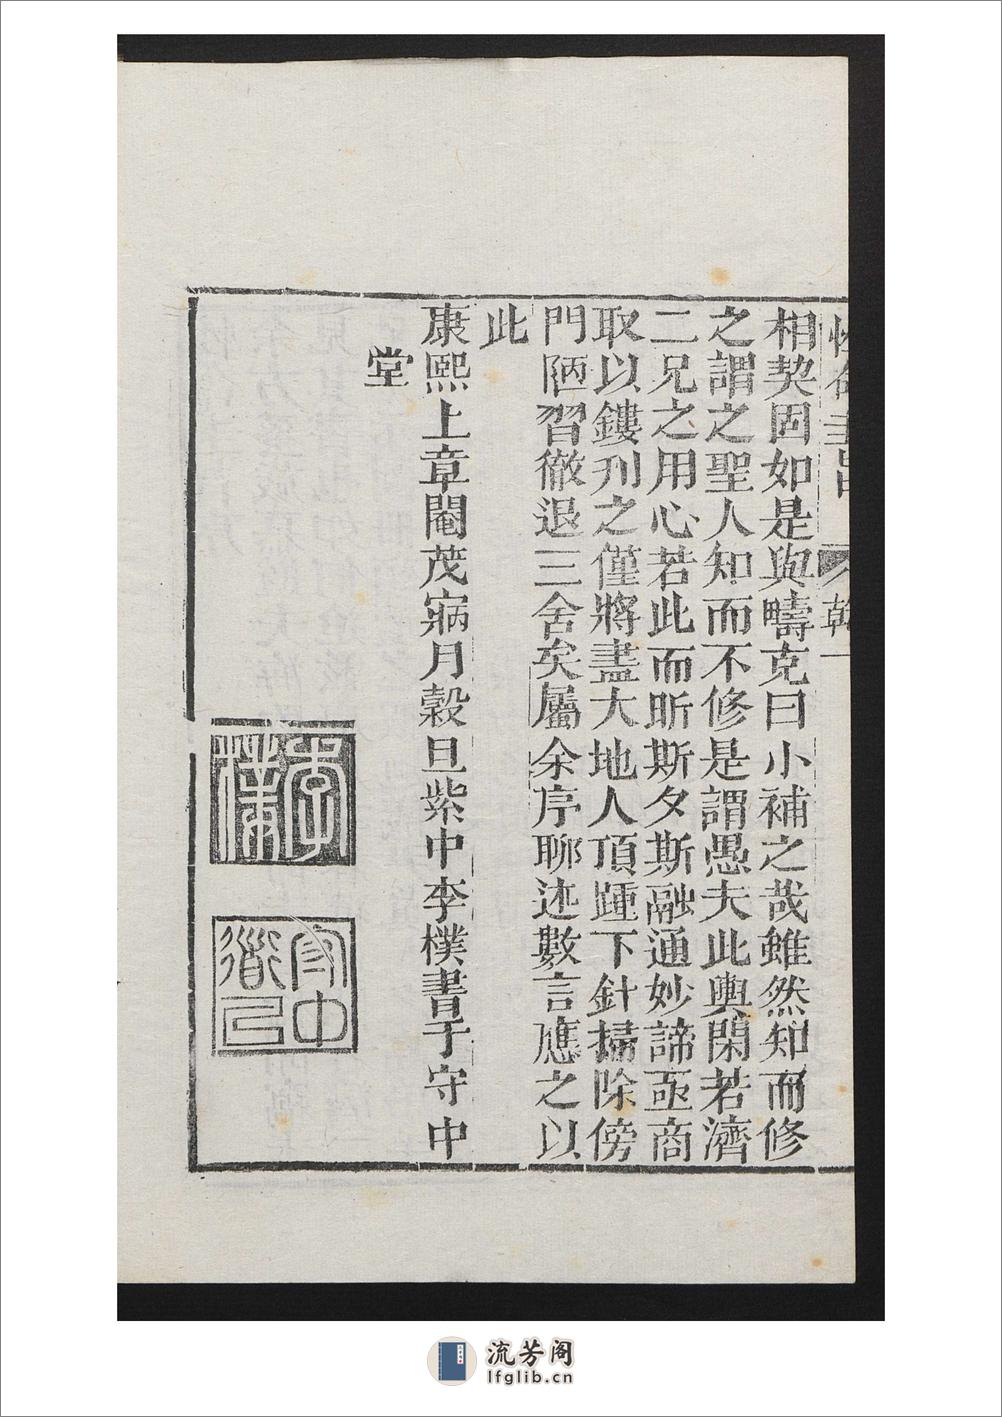 性命圭旨
相契固如是與疇克曰小補之哉雖然知而修
之謂之聖人知而不修是謂愚夫此輿閑若濟
二兄之用心若此而昕斯夕斯融通妙諦亟商
取以鏤刋之僅將盡大地人頂踵下針掃除傍
門陋習徹退三舍矣屬余序聊述數言應之以
此
康熙上章閹茂寎月穀旦紫中李樸書于守中
堂
李樸
流芳阁
lfglib.cn